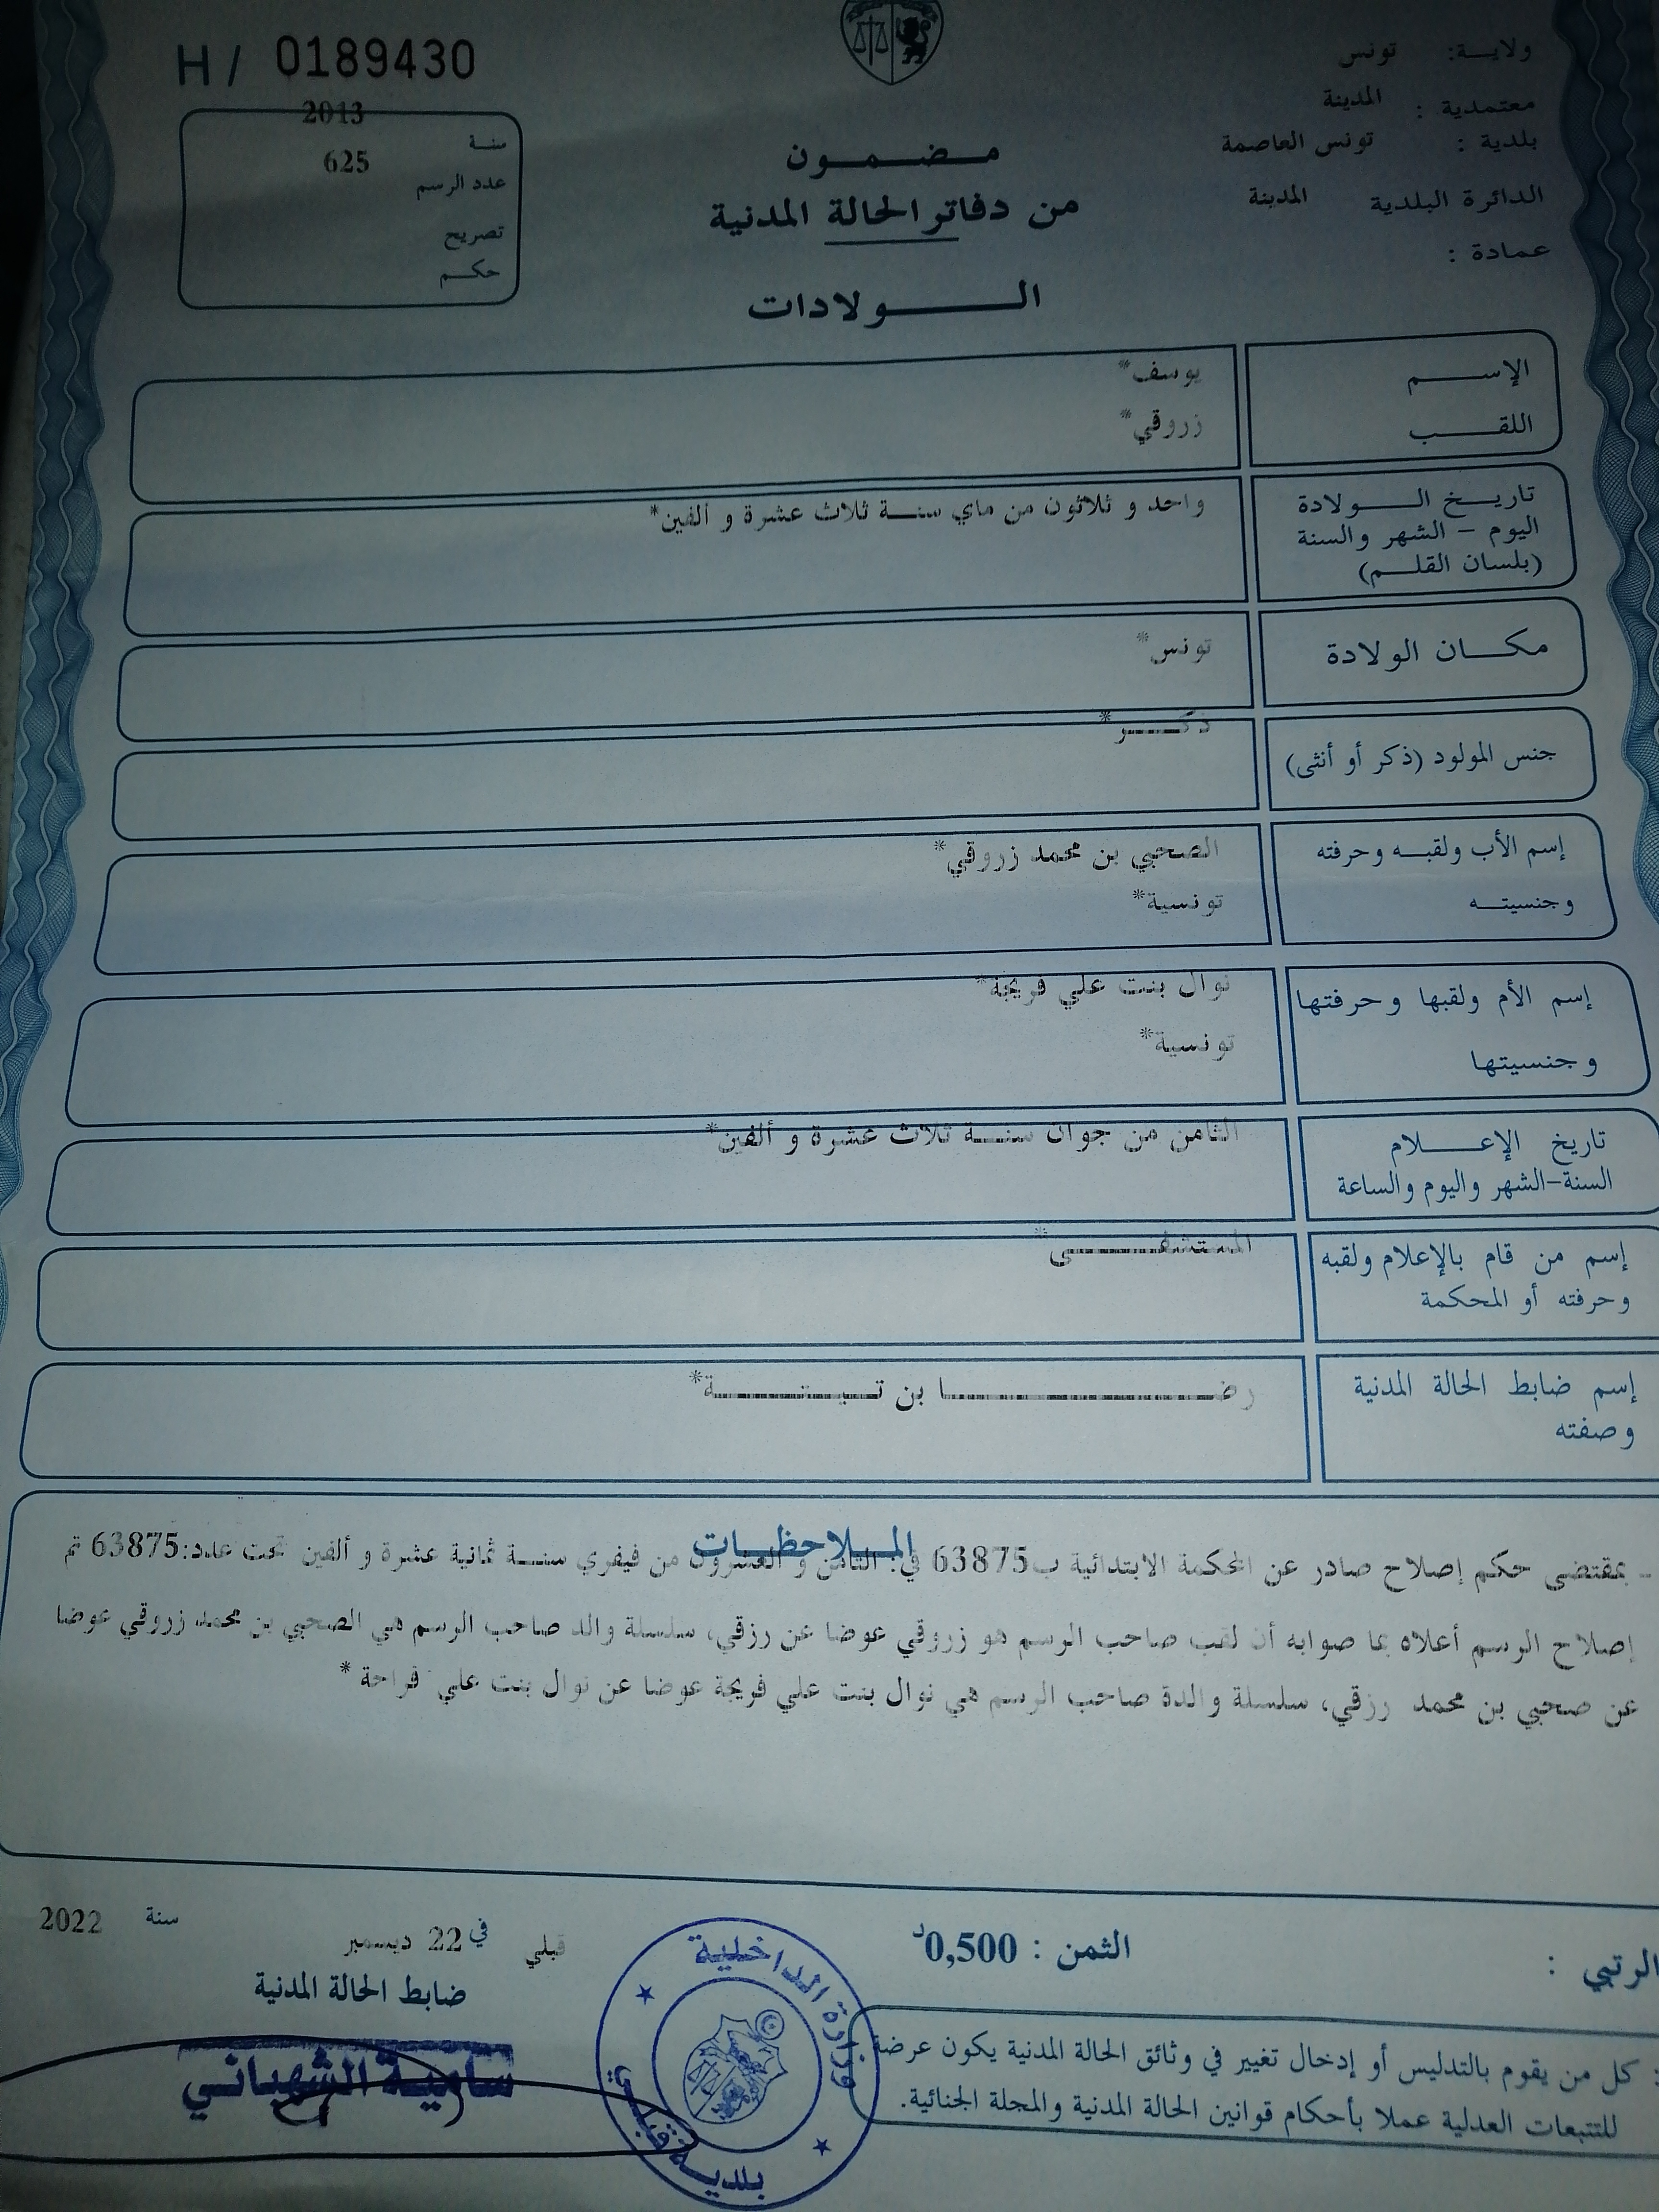 H / 0189430
ولايـة: تونس
معتمدية : المدينة
بلدية : تونس العاصمة
الدائرة البلدية المدينة
عمادة :
2013
سنـة
625
عدد الرسم
تصريح
حكـم
مـضـمـون
من دفاتر الحالة المدنية
الـولادات
الإســم يوسف*
اللقــب زروقي*
تاريـخ الـولادة
اليوم – الشهر والسنة
(بلسان القلـم)
واحد و ثلاثون من ماي سنـة ثلاث عشرة و ألفين*
مكـان الولادة تونس*
جنس المولود (ذكر أو أنثى) ذكـر*
إسم الأب ولقبـه وحرفته الصحبي بن محمد زروقي*
وجنسيتـه تونسية*
إسم الأم ولقبها وحرفتها نوال بنت علي فريجة*
وجنسيتها تونسية*
تاريخ الإعـلام
السنة–الشهر واليوم والساعة
الثامن من جوان سنـة ثلاث عشرة و ألفين*
إسم من قام بالإعلام ولقبه
وحرفته أو المحكمة
المستشفـى*
إسم ضابط الحالة المدنية
وصفته
رضـا بن
المـلاحظـات
- بمقتضى حكم إصلاح صادر عن المحكمة الابتدائية ب63875 في: الثامن و العشرون من فيفري سنـة ثمانية عشرة و ألفين تحت عدد:63875 تم
إصلاح الرسم أعلاه بما صوابه أن لقب صاحب الرسم هو زروقي عوضا عن رزقي، سلسلة والد صاحب الرسم هي الصحبي بن محمد زروقي عوضا
عن صحبي بن محمد رزقي، سلسلة والدة صاحب الرسم هي نوال بنت علي فريجة عوضا عن نوال بنت علي فراحة *
قبلي في 22 ديسمبر سنة 2022
ضابط الحالة المدنية
سامية الشهباني
وزارة الداخلية
بلدية قبلي
الثمن : 0,500د
الرتبي :
: كل من يقوم بالتدليس أو إدخال تغيير في وثائق الحالة المدنية يكون عرضة
للتتبعات العدلية عملا بأحكام قوانين الحالة المدنية والمجلة الجنائية.